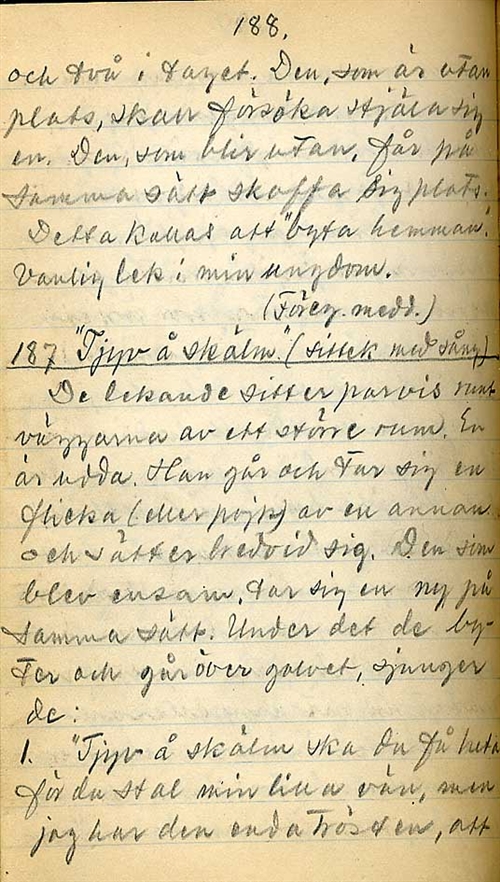 188.
och två i taget. Den, som är utan
plats, skall försöka stjäla sig
en. Den, som blir utan, får på
samma sätt skaffa sig plats.
Detta kallas att "byta hemman".
Vanlig lek i min ungdom.
(Föreg. medd.)
187 "Tjyv å skälm." (sittlek med sång)
De lekande sitter parvis runt
väggarna av ett större rum. En
är udda. Han går och tar sig en
flicka (eller pojk) av en annan
och sätter bredvid sig. Den som
blev ensam, tar sig en ny på
samma sätt. Under det de by-
ter och går över golvet, sjunger
de:
1. "Tjyv å skälm ska du få heta
för du stal min lilla vän, men
jag har den enda trösten, att